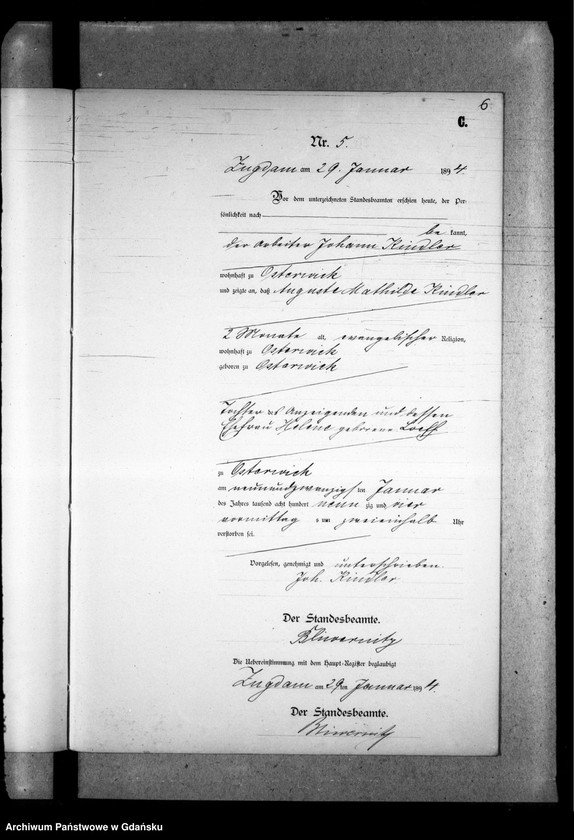 6
C.
Nr. 5.
Zugdam am 29. Januar 1894.
Vor dem unterzeichneten Standesbeamten erschien heute, der Per-
sönlichkeit nach
be kannt,
der Arbeiter Johann Kindler
wohnhaft zu Osterwick
und zeigte an, daß Auguste Mathilde Kindler
2 Monate alt, evangelischer Religion,
wohnhaft zu Osterwick
geboren zu Osterwick
Tochter des Anzeigenden und dessen
Ehefrau Helene geborene
zu Osterwick
am neunundzwanzigsten Januar
des Jahres tausend acht hundert neun zig und vier
vormittag s um zweieinhalb Uhr
verstorben sei.
Vorgelesen, genehmigt und unterschrieben
Joh. Kindler
Der Standesbeamte.
Die Uebereinstimmung mit dem Haupt-Register beglaubigt
Zugdam am 29ten Januar 1894.
Der Standesbeamte.
Archiwum Państwowe w Gdańsku